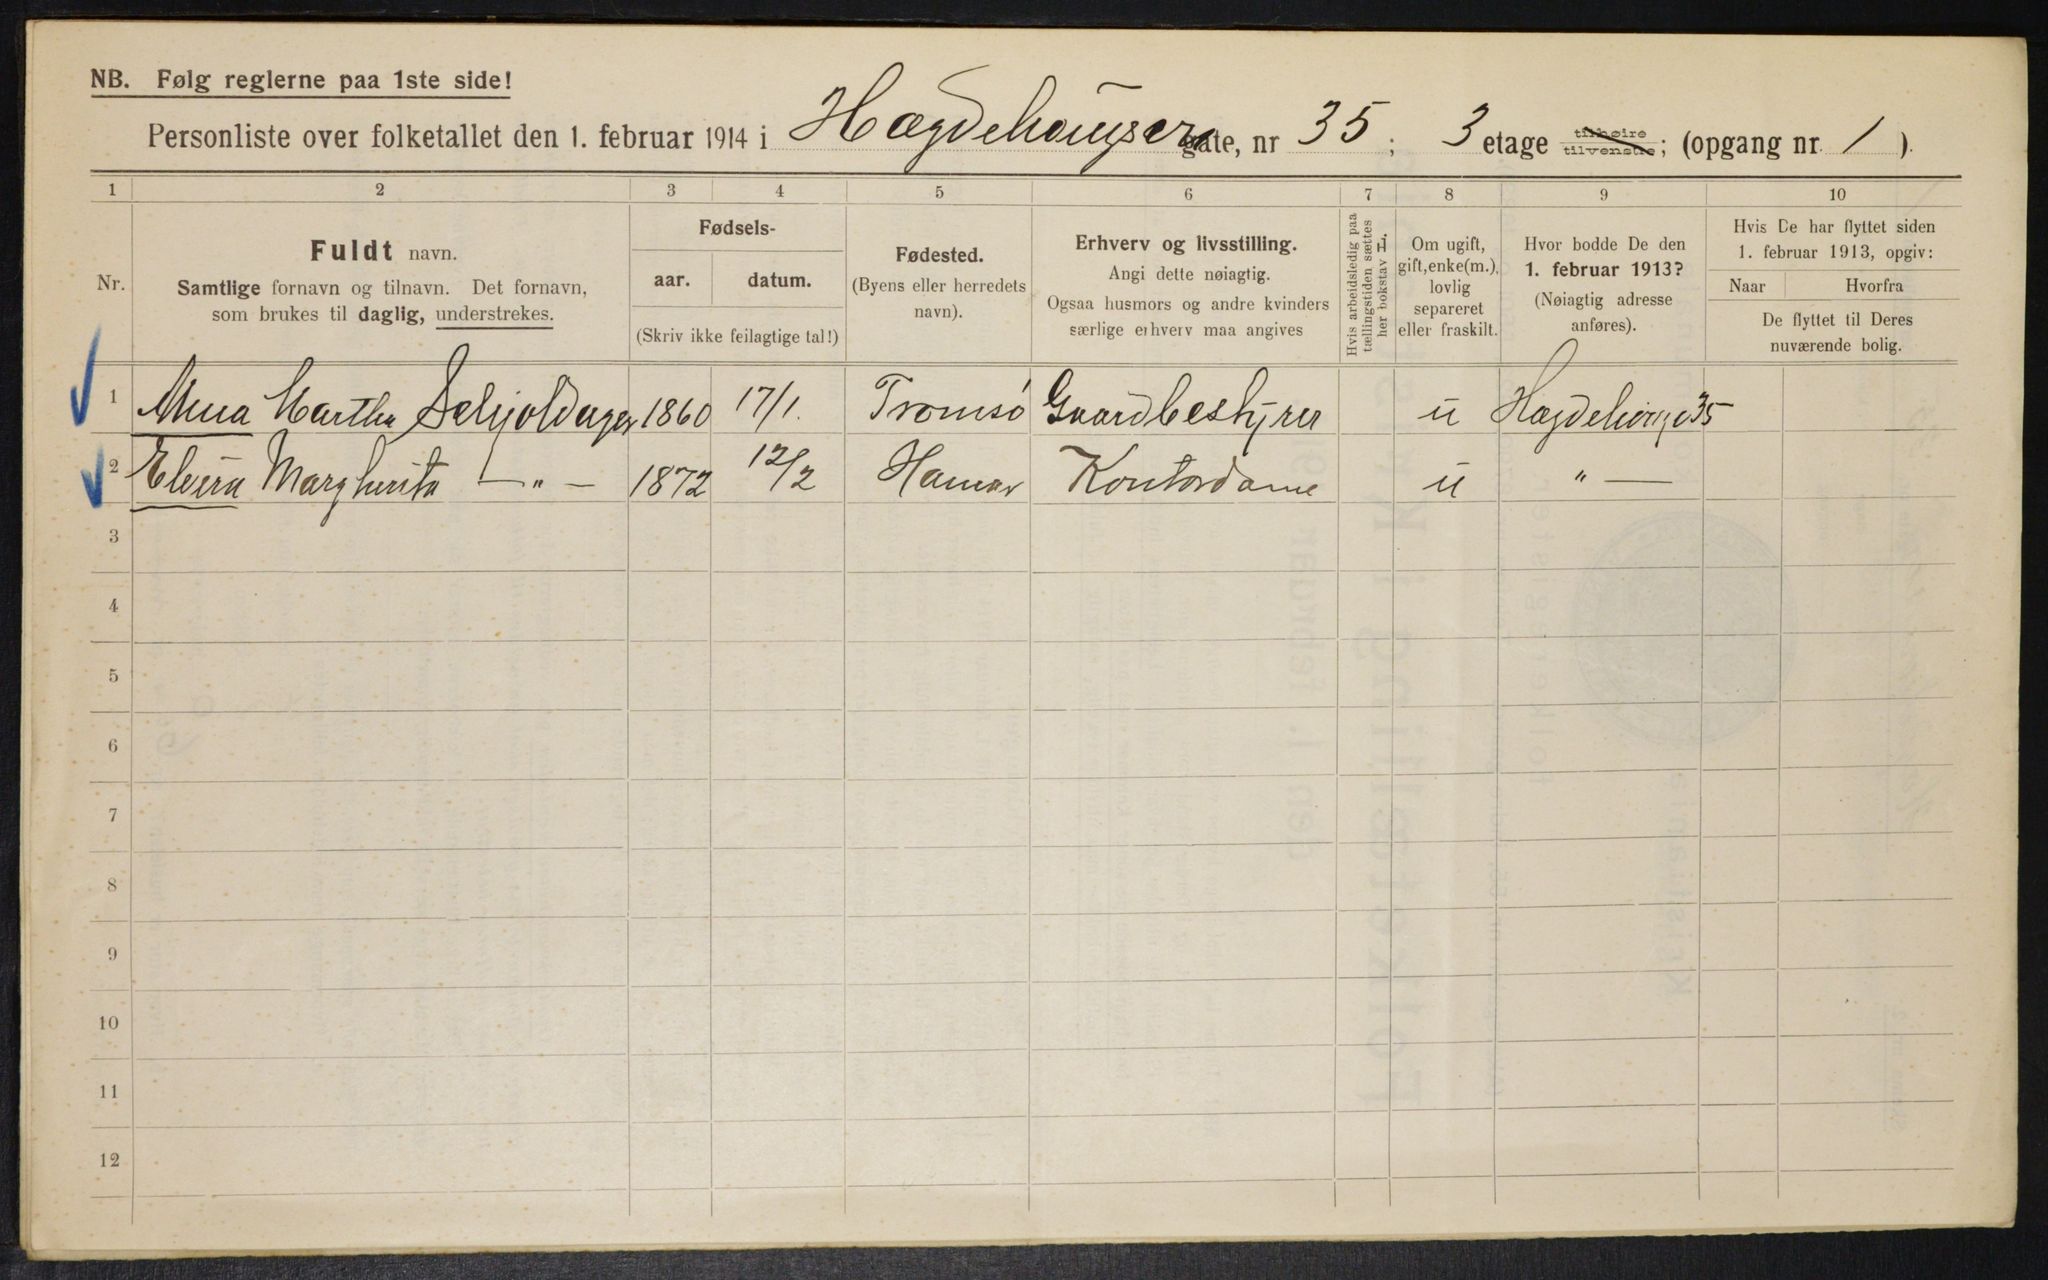 NB. Følg reglerne paa 1ste side!
Personliste over folketallet den 1. februar 1914 i Hægdehaugser gate, nr 35; 3 etage tilhøire tilvenstre; (opgang nr. 1).
1 2 3 4 5 6 7 8 9 10
Nr.
Fuldt navn.
Samtlige fornavn og tilnavn. Det fornavn,
som brukes til daglig, understrekes.
Fødsels-
aar. datum.
(Skriv ikke feilagtige tal!)
Fødested.
(Byens eller herredets
navn).
Erhverv og livsstilling.
Angi dette nøiagtig.
Ogsaa husmors og andre kvinders
særlige erhverv maa angives
Hvis arbeidsledig paa
tællingstiden sættes
her bokstav L.
Om ugift,
gift, enke(m.),
lovlig
separeret
eller fraskilt.
Hvor bodde De den
1. februar 1913?
(Nøiagtig adresse
anføres).
Hvis De har flyttet siden
1. februar 1913, opgiv:
Naar Hvorfra
De flyttet til Deres
nuværende bolig.
1 Martha Schjoldager 1860 17/1. Tromsø Gaardbestyrer u 35
2 Elvira Margherita —"— 1872 12/2 Hamar Kontordame u " —
3
4
5
6
7
8
9
10
11
12